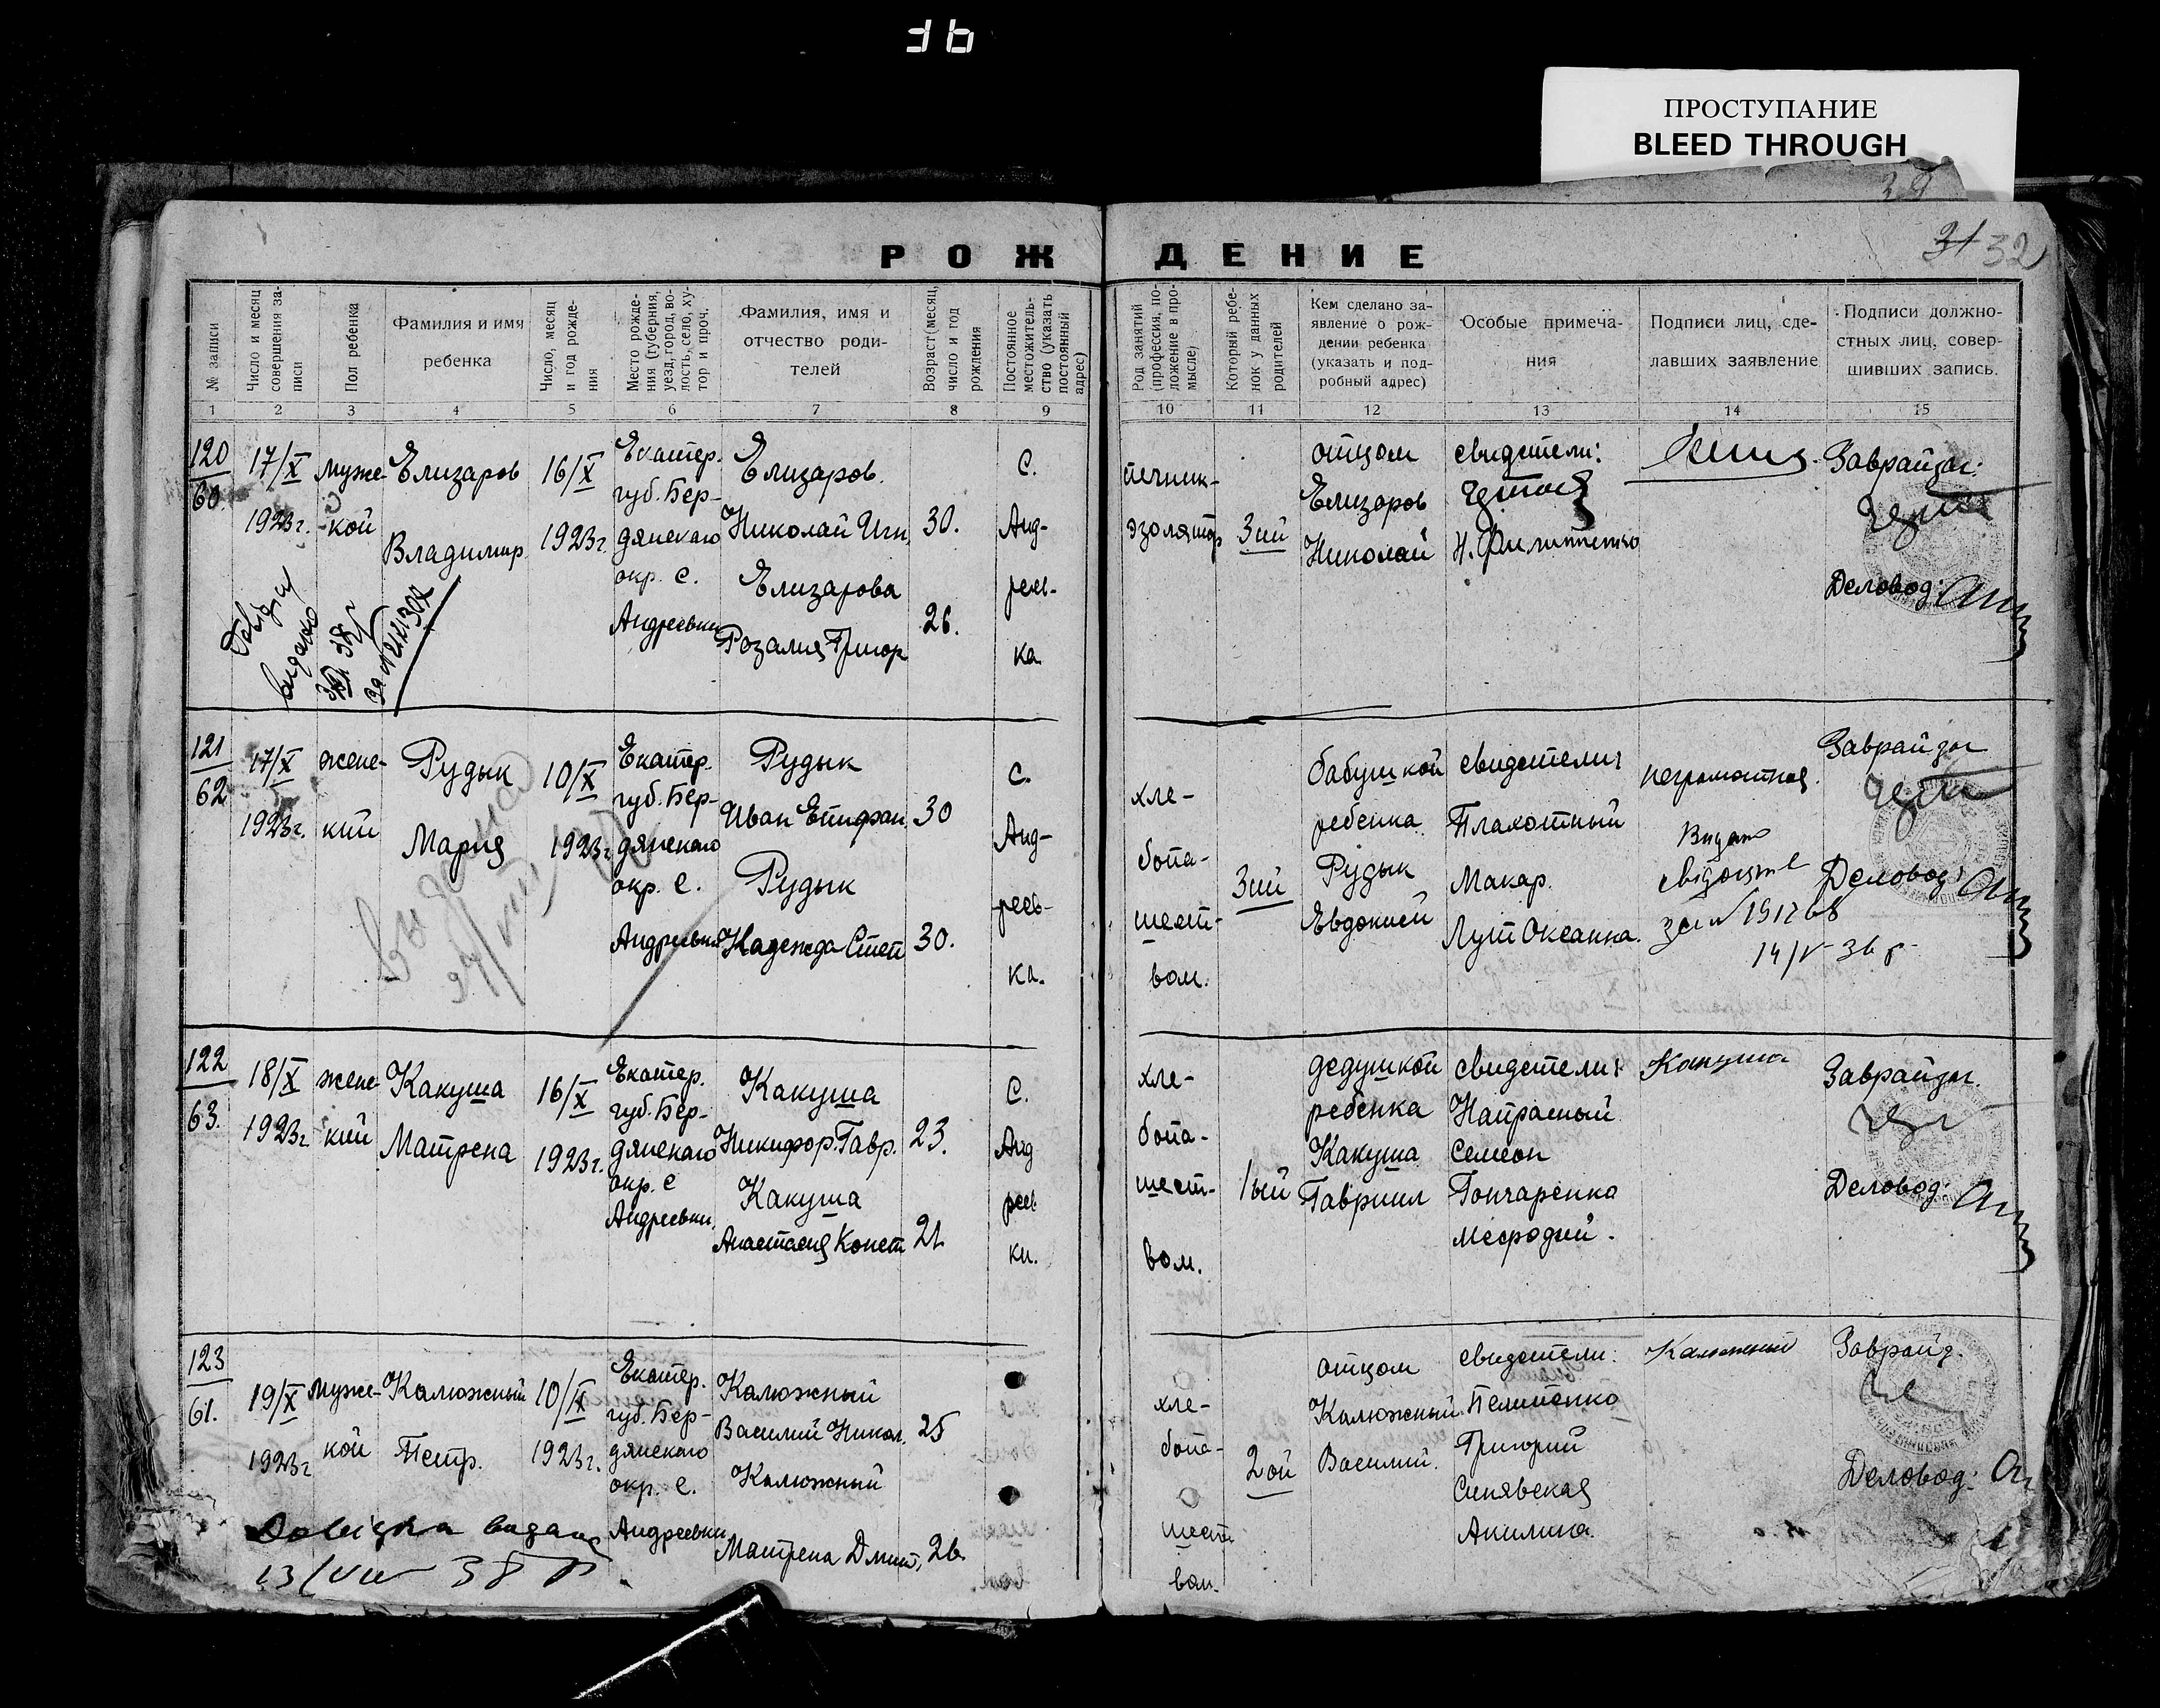 ПРОСТУПАНИЕ
BLEED THROUGH
РОЖДЕНИЕ
31 32
№ записи
Число и месяц совершения записи
Пол ребенка
Фамилия и имя ребенка
Число, месяц и год рождения
Место рождения (губерния, уезд, город, волость, село, хутор и проч.
Фамилия, имя и отчество родителей
Возраст (месяц, число и год рождения
Постоянное местожительство (указать постоянный адрес)
Род занятий (профессия, положение в промысле)
Который ребенок у данных родителей
Кем сделано заявление о рождении ребенка (указать и подробный адрес)
Особые примечания
Подписи лиц, сделавших заявление
Подписи должностных лиц, совершивших запись.
1 2 3 4 5 6 7 8 9 10 11 12 13 14 15
120
60.
17/X
1923г.
муже-
кой
Елизаров
Владимир
16/X
1923г
Екатер.
губ. Бер-
дянскаго
окр. с.
Андреевки
Елизаров.
Николай Игн.
Елизарова
Розалия Григор
30.
26.
с.
Анд-
реев-
ка
печник-
3ий
отцом
Елизаров
Николай
свидетели:
Н. Филиппенко
Заврайзаг.
Деловод:
121
62
17/X
1923г.
женс-
кий
Рудык
Мария
10/X
1923г
Екатер.
губ. Бер-
дянскаго
окр. с.
Андреевки
Рудык
Иван Епифан
Рудык
Надежда Степ
30
30.
с.
Анд-
реев-
ка.
хле-
бопа-
шест-
вом.
3ий
бабушкой
ребенка
Рудык
Евдокией
свидетели:
Плахотный
Макар.
Лут Оксанка.
неграмотная
Видано
свідоцтв
за № 191268
14/V 36 р
Заврайзаг
Деловод:
122
63.
18/X
1923г
женс-
кий
Какуша
Матрена
16/X
1923г.
Екатер.
губ. Бер-
дянскаго
окр. с
Андреевки
Какуша
Никифор. Гавр.
Какуша
Анастасия Конст
23.
21
с.
Анд
реев
ки.
хле-
бопа-
шест-
вом.
1ый
дедушкой
ребенка
Какуша
Гавриил
свидетели:
Напрасный
Семеон
Гончаренко
Мефодий.
Какуша
Заврайзаг.
Деловод.
123
61.
19/X
1923г
муже-
кой
Калюжный
Петр.
10/X
1923г.
Екатер.
губ. Бер-
дянскаго
окр. с.
Андреевки
Калюжный
Василий Никол.
Калюжный
Матрена Дмит,
25
26.
хле-
бопа-
шест
вом.
2ой
отцом
Калюжный
Василий.
свидетели:
Пелипенко
Григорий
Синявская
Акилина.
Калюжный
Заврайз.
Деловод:
Довідка видана
13/VIII 38 р.